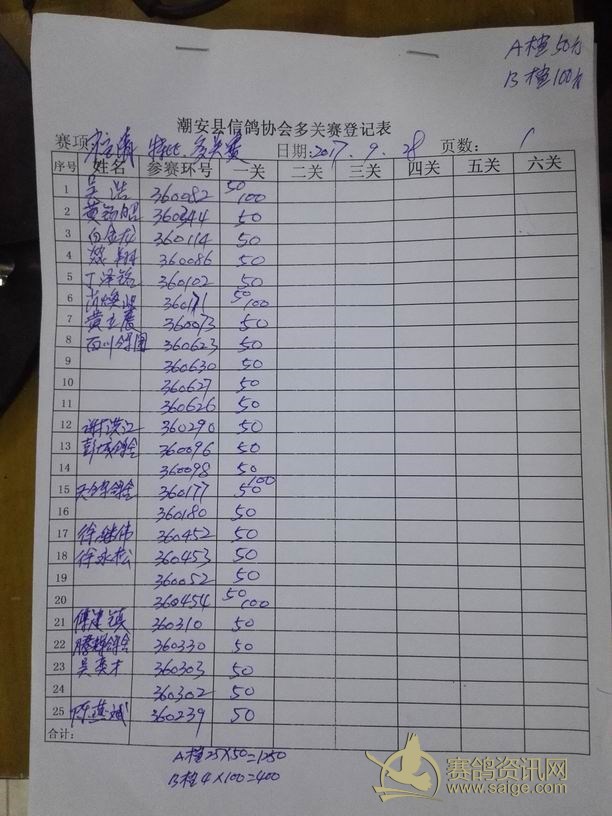 A档50分
B档100分
潮安县信鸽协会多关赛登记表
赛项: 特比、多关赛 日期:2017.9.28 页数: 1
序号 姓名 参赛环号 一关 二关 三关 四关 五关 六关
1 吴浩 360082 50 100
2 360344 50
3 360114 50
4 360086 50
5 丁泽铭 360102 50
6 360171 50 100
7 360073 50
8 百川鸽园 360623 50
9 360630 50
10 360627 50
11 360626 50
12 谢洪江 360290 50
13 360096 50
14 360098 50
15 360177 50 100
16 360180 50
17 徐继伟 360452 50
18 徐永松 360453 50
19 360052 50
20 360454 50 100
21 傅建镇 360310 50
22 腾辉鸽舍 360330 50
23 吴奕才 360303 50
24 360302 50
25 陈燕斌 360239 50
合计:
A档25×50=1250
B档4×100=400
赛鸽资讯网
www.saige.com